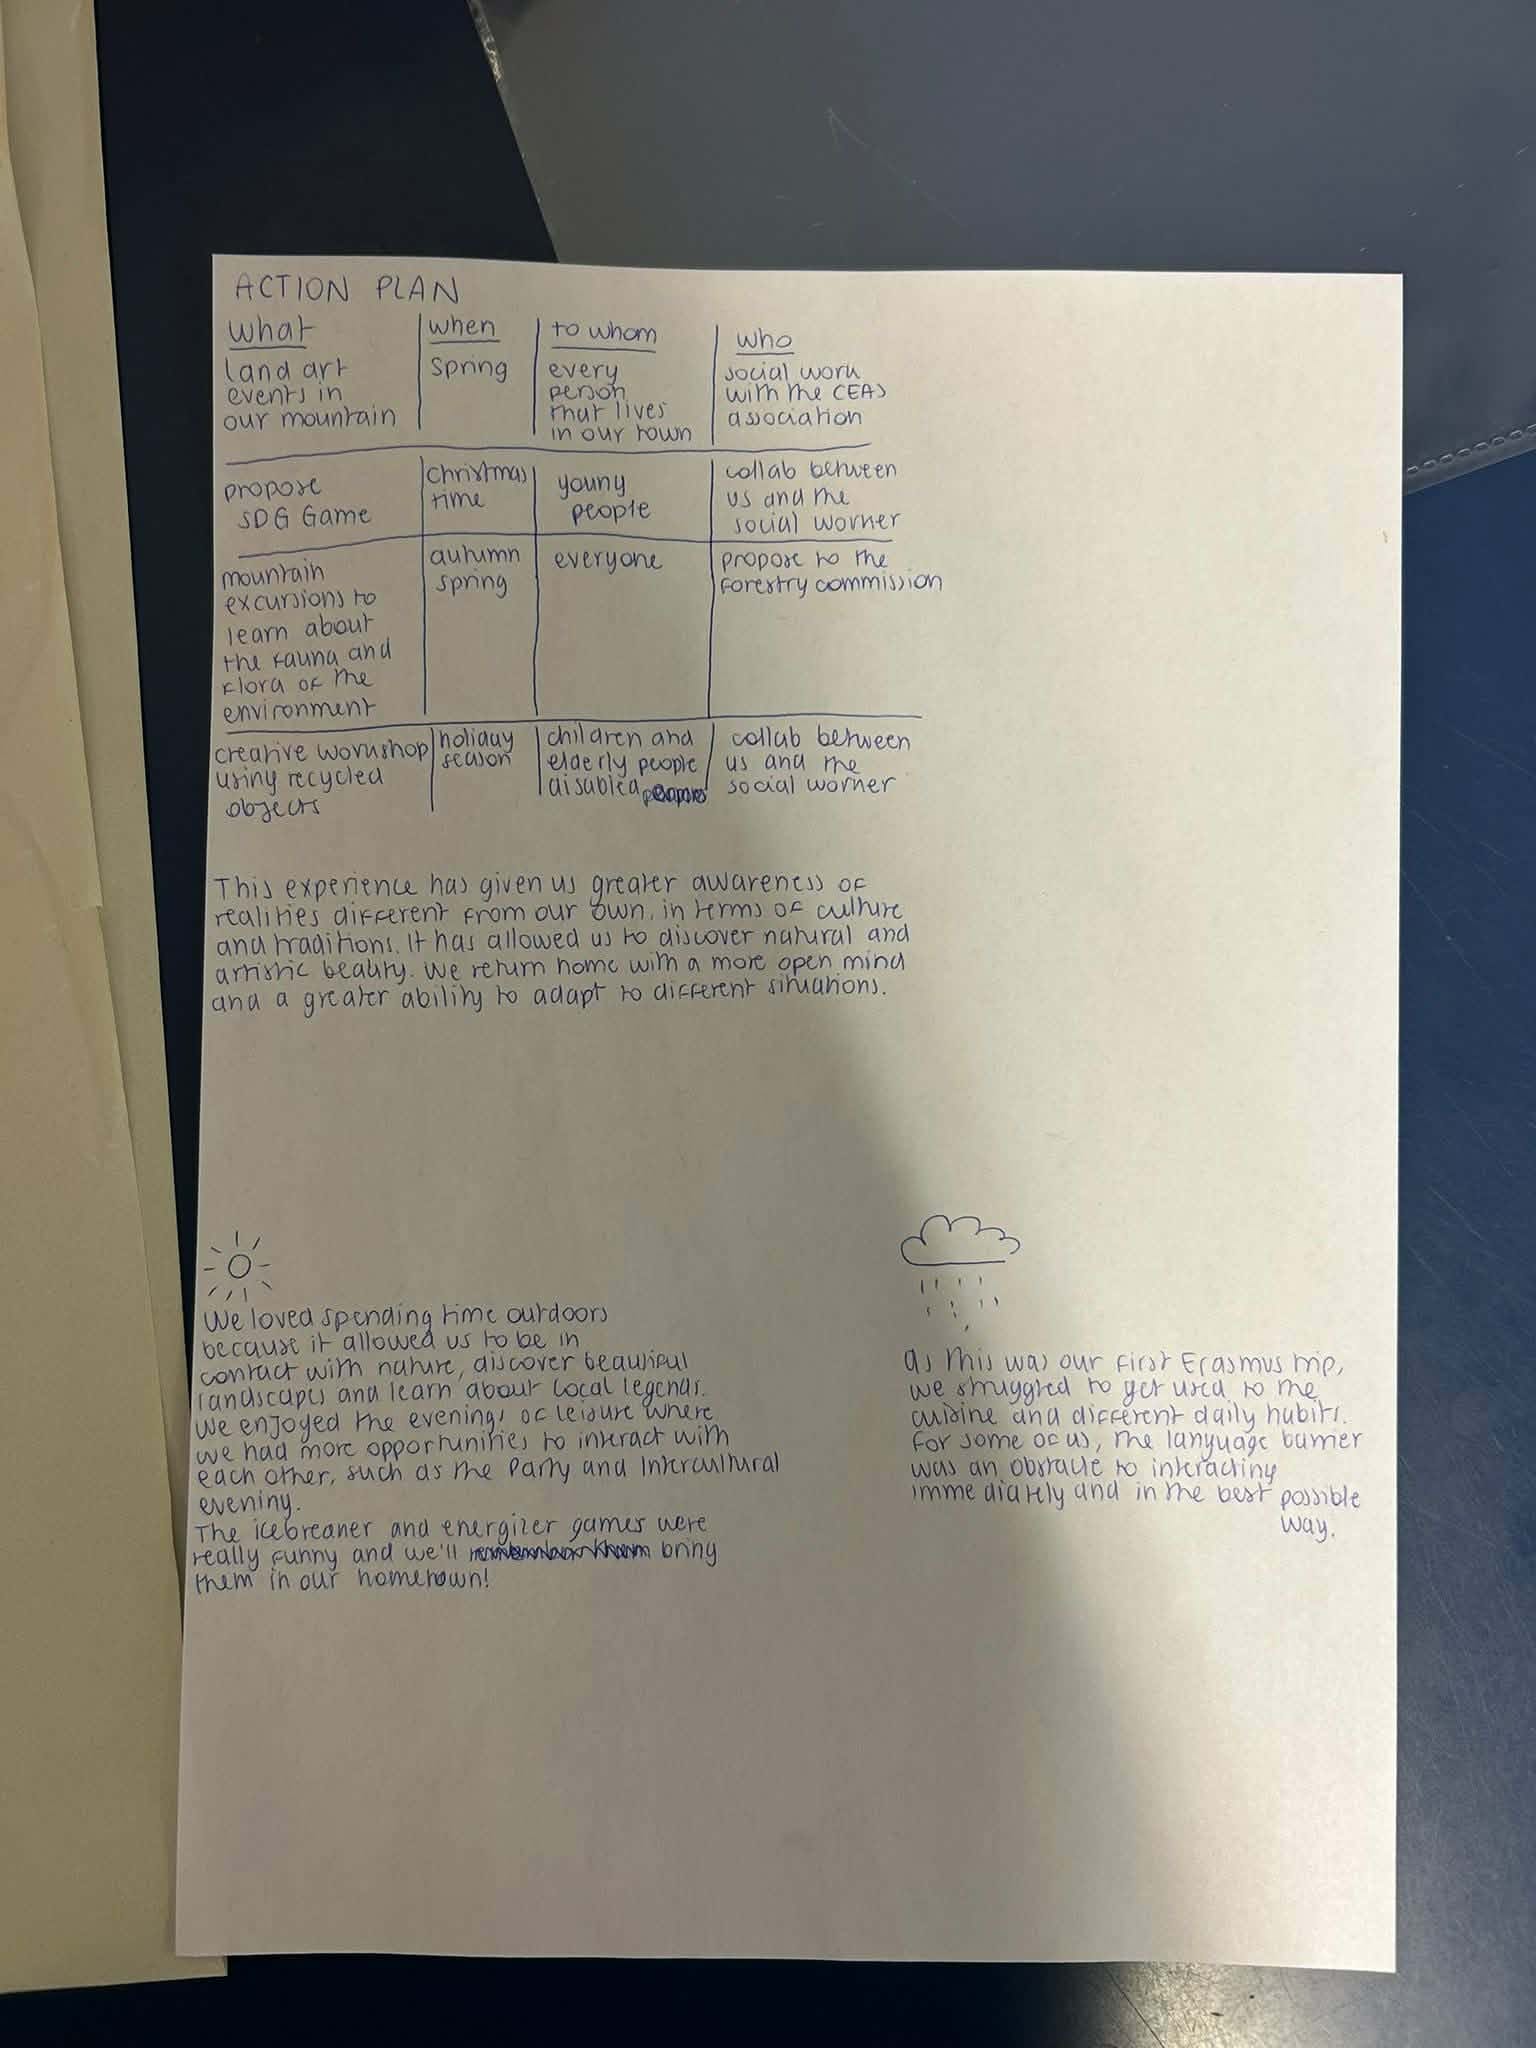 ACTION PLAN
what when to whom who
land art spring every social work
events in person with the CEAS
our mountain that lives association
in our town
propose christmas young collab between
SDG Game time people us and the
social worker
mountain autumn everyone propose to the
excursions to spring forestry commission
learn about
the fauna and
flora of the
environment
creative workshop holiday children and collab between
using recycled season elderly people us and the
objects disabled social worker
This experience has given us greater awareness of
realities different from our own, in terms of culture
and traditions. It has allowed us to discover natural and
artistic beauty. We return home with a more open mind
and a greater ability to adapt to different situations.
We loved spending time outdoors
because it allowed us to be in
contact with nature, discover beautiful
landscapes and learn about local legends.
We enjoyed the evenings of leisure where
we had more opportunities to interact with
each other, such as the Party and Intercultural
evening.
The icebreaker and energizer games were
really funny and we'll bring
them in our hometown!
As this was our first Erasmus trip,
we struggled to get used to the
cuisine and different daily habits.
For some of us, the language barrier
was an obstacle to interacting
immediately and in the best possible
way.